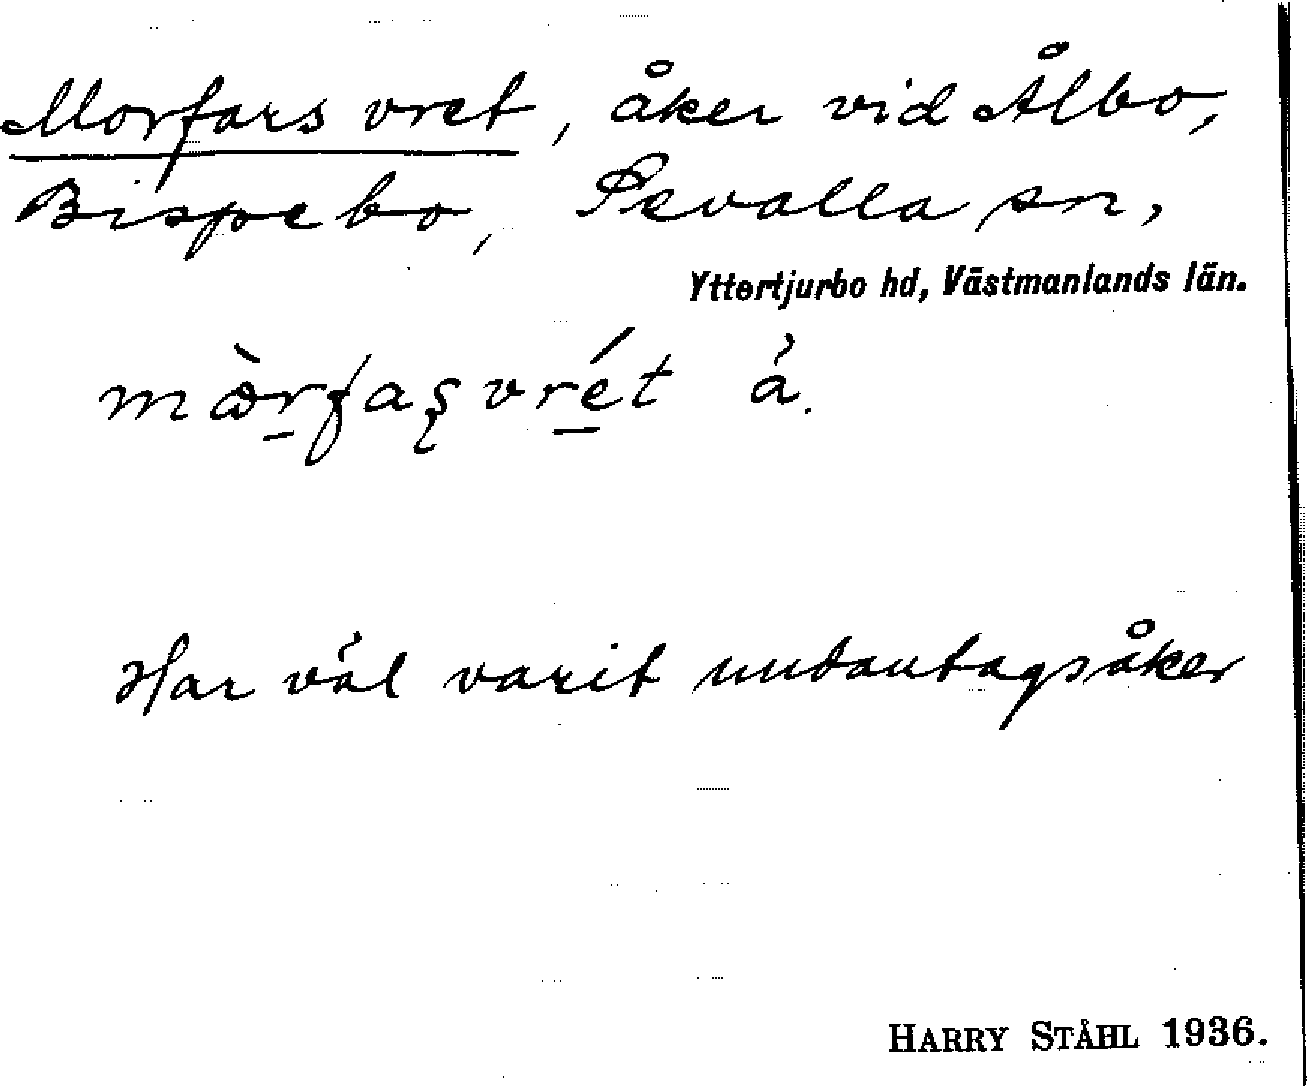 Morfars vret, åker vid Ålbo,
Bispebo, Sevalla sn,
Yttertjurbo hd, Västmanlands län.
vrét
Har väl varit undantagsåker
HARRY STÅHL 1936.